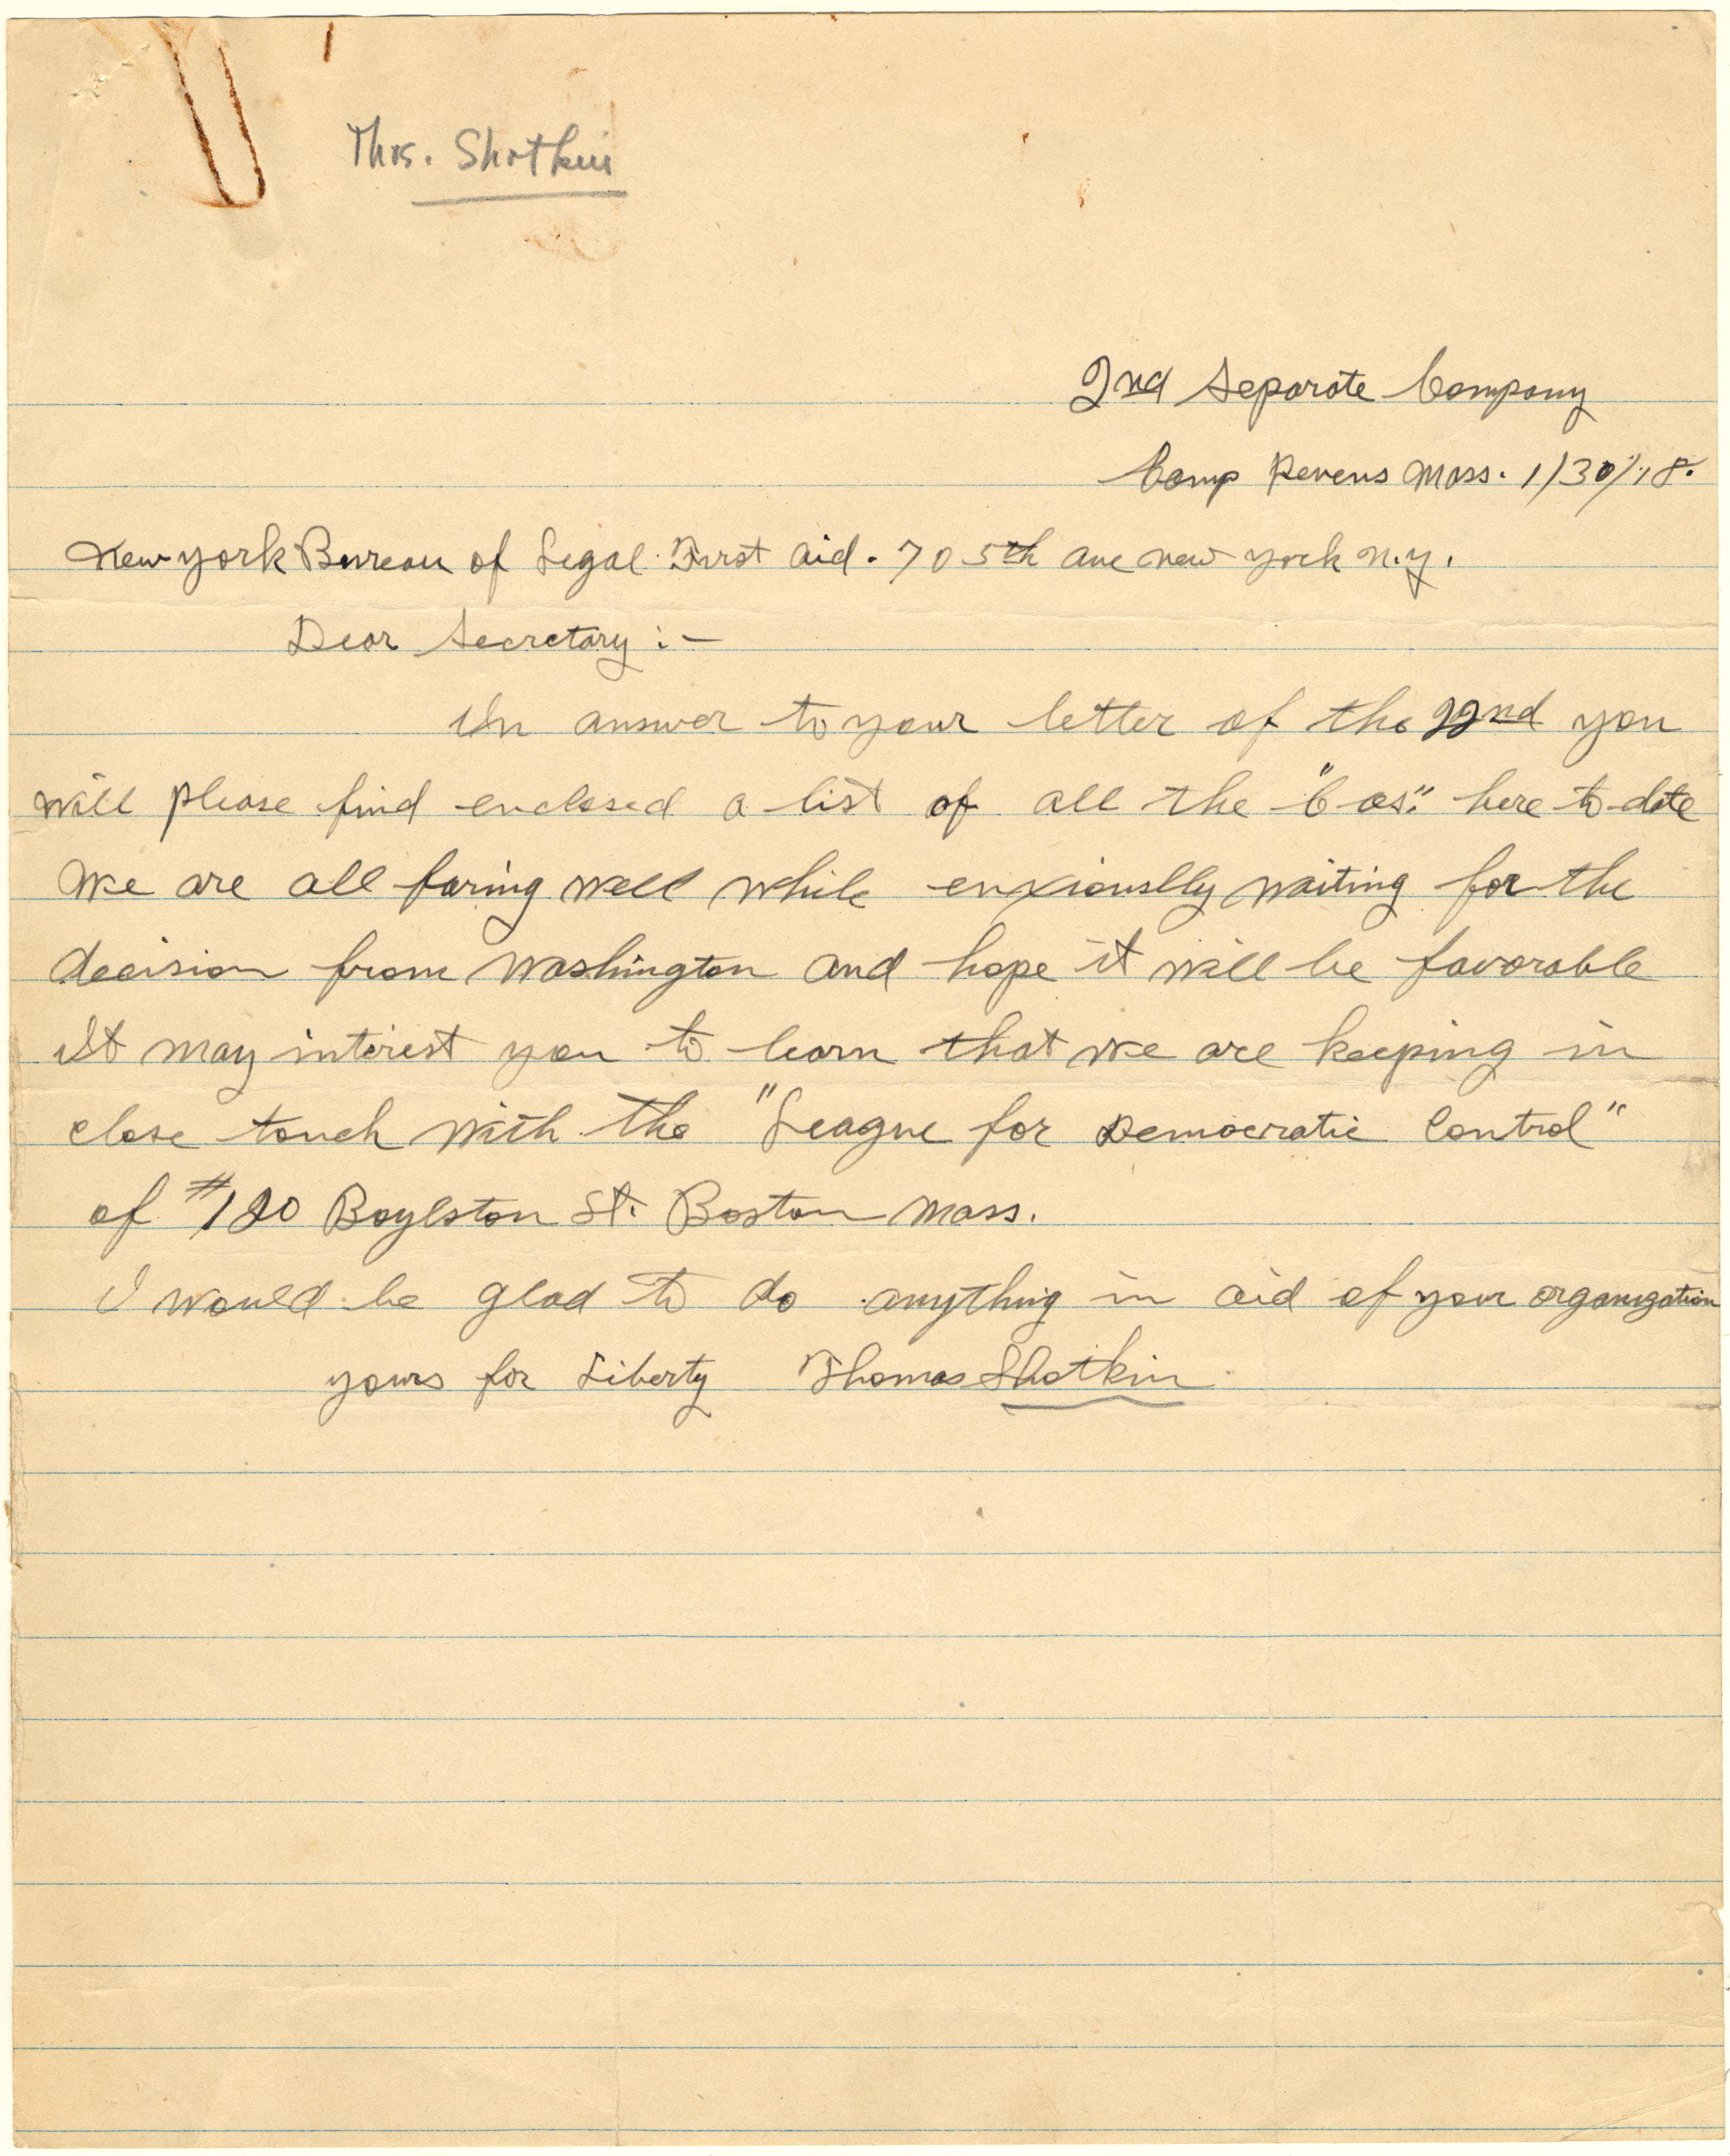 Thos. Shotkin
2nd Separate Company
Camp Devens Mass. 1/30/18.
New York Bureau of Legal First Aid. 70 5th ave new york n.y.
Dear Secretary :-
In answer to your letter of the 22nd you
will please find enclosed a list of all the "Cos." here to date
We are all faring well while enxiouslly waiting for the
decision from Washington and hope it will be favorable
It may interest you to learn that we are keeping in
close touch with the "League for Democratic Control"
of #120 Boylston St. Boston Mass.
I would be glad to do anything in aid of your organization
yours for Liberty Thomas Shotkin